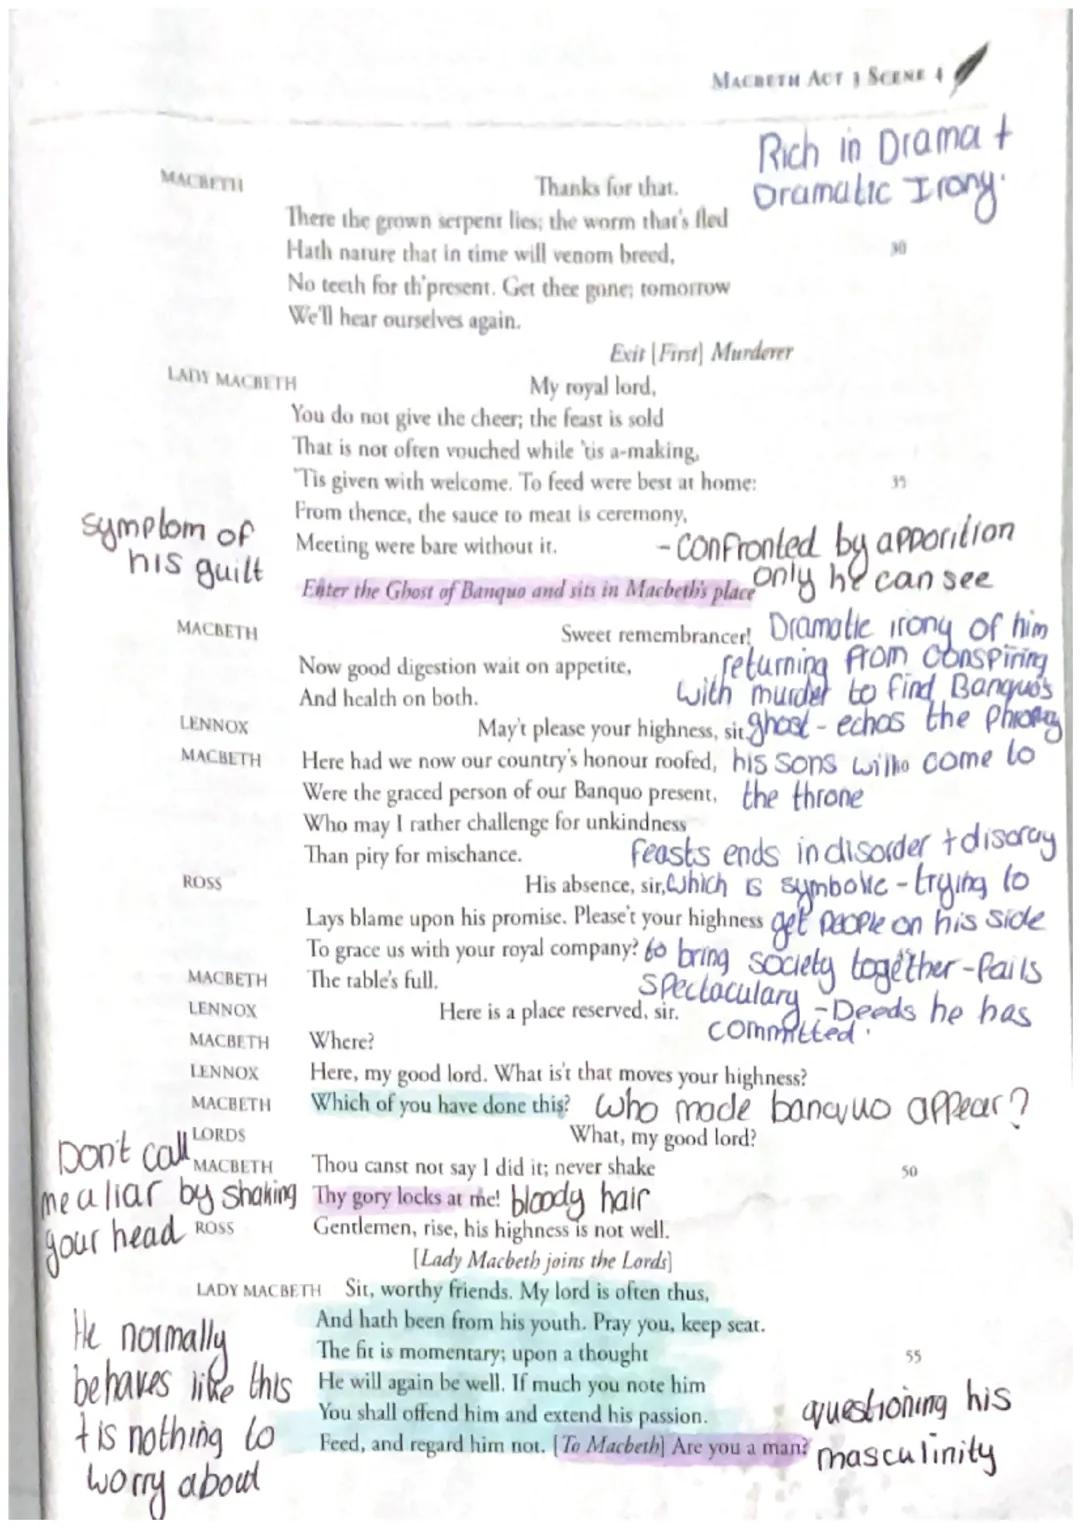 MACBETH ACT 3 SCENE 4
Rich in Drama +
Dramatic Irony.
MACBETH Thanks for that.
There the grown serpent lies; the worm that's fled
Hath nature that in time will venom breed, 30
No teeth for th'present. Get thee gone; tomorrow
We'll hear ourselves again.
Exit [First] Murderer
LADY MACBETH My royal lord,
You do not give the cheer; the feast is sold
That is not often vouched while 'tis a-making,
'Tis given with welcome. To feed were best at home: 35
From thence, the sauce to meat is ceremony,
Meeting were bare without it.
symptom of
his guilt
- confronted by apporition
only he can see
Enter the Ghost of Banquo and sits in Macbeth's place
MACBETH Sweet remembrancer!
Now good digestion wait on appetite,
And health on both.
Dramatic irony of him
returning from conspiring
with murder to find Banquo's
ghost - echos the
his sons will come to
the throne
LENNOX May't please your highness, sit.
MACBETH Here had we now our country's honour roofed,
Were the graced person of our Banquo present,
Who may I rather challenge for unkindness
Than pity for mischance.
feasts ends in disorder + disaray
which is symbolic - trying to
get people on his side
to bring society together - fails
spectaculary - Deeds he has
committed.
ROSS His absence, sir,
Lays blame upon his promise. Please't your highness
To grace us with your royal company?
MACBETH The table's full.
LENNOX Here is a place reserved, sir.
MACBETH Where?
LENNOX Here, my good lord. What is't that moves your highness?
MACBETH Which of you have done this? Who made banquo appear?
LORDS What, my good lord?
MACBETH Thou canst not say I did it; never shake 50
Thy gory locks at me! bloody hair
Don't call
me a liar by shaking
your head
ROSS Gentlemen, rise, his highness is not well.
[Lady Macbeth joins the Lords]
LADY MACBETH Sit, worthy friends. My lord is often thus,
And hath been from his youth. Pray you, keep seat.
The fit is momentary; upon a thought 55
He will again be well. If much you note him
You shall offend him and extend his passion.
Feed, and regard him not. [To Macbeth] Are you a man?
He normally
behaves like this
+ is nothing to
worry about
questioning his
masculinity